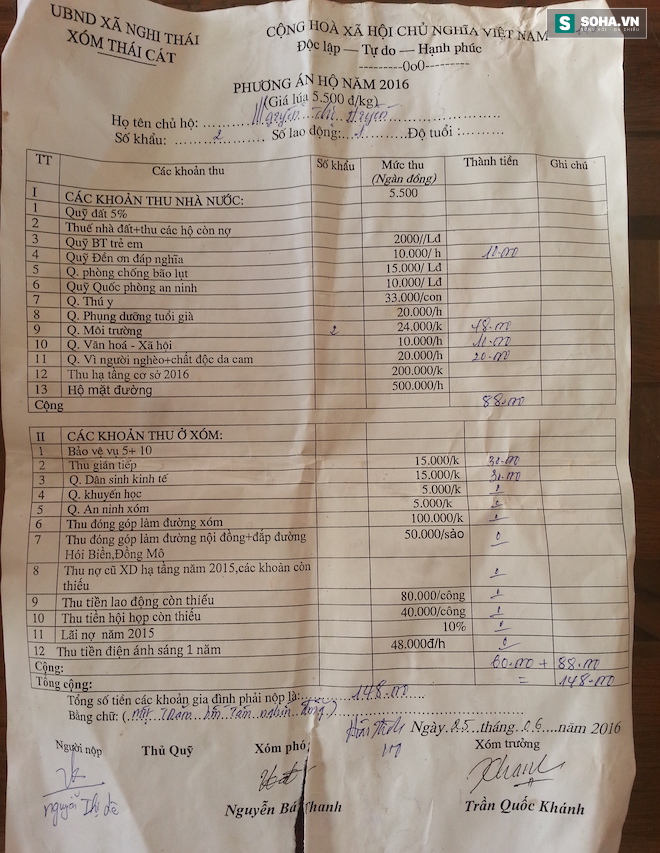 SOHA.VN
UBND XÃ NGHI THÁI
XÓM THÁI CÁT
CỘNG HOÀ XÃ HỘI CHỦ NGHĨA VIỆT NAM
Độc lập — Tự do — Hạnh phúc
--------0o0--------
PHƯƠNG ÁN HỘ NĂM 2016
(Giá lúa 5.500 đ/kg)
Họ tên chủ hộ: Nguyễn Thị
Số khẩu: 2 Số lao động: 1 Độ tuổi :
TT Các khoản thu Số khẩu Mức thu (Ngàn đồng) Thành tiền Ghi chú
I CÁC KHOẢN THU NHÀ NƯỚC: 5.500
1 Quỹ đất 5%
2 Thuế nhà đất+thu các hộ còn nợ
3 Quỹ BT trẻ em 2000//Lđ
4 Quỹ Đền ơn đáp nghĩa 10.000/ h 10.000
5 Q. phòng chống bão lụt 15.000/ Lđ
6 Quỹ Quốc phòng an ninh 10.000/ Lđ
7 Q. Thú y 33.000/con
8 Q. Phụng dưỡng tuổi già 20.000/h
9 Q. Môi trường 2 24.000/k 48.000
10 Q. Văn hoá - Xã hội 10.000/h 10.000
11 Q. Vì người nghèo+chất độc da cam 20.000/h 20.000
12 Thu hạ tầng cơ sở 2016 200.000/k
13 Hộ mặt đường 500.000/h
Cộng 88.000
II CÁC KHOẢN THU Ở XÓM:
1 Bảo vệ vụ 5+ 10
2 Thu gián tiếp 15.000/k 30.000
3 Q. Dân sinh kinh tế 15.000/k 30.000
4 Q. khuyến học 5.000/k 0
5 Q. An ninh xóm 5.000/k 0
6 Thu đóng góp làm đường xóm 100.000/k 0
7 Thu đóng góp làm đường nội đồng+đắp đường 50.000/sào 0
Hói Biền,Đồng Mô
8 Thu nợ cũ XD hạ tầng năm 2015,các khoản còn 0
thiếu
9 Thu tiền lao động còn thiếu 80.000/công 0
10 Thu tiền hội họp còn thiếu 40.000/công 0
11 Lãi nợ năm 2015 10% 0
12 Thu tiền điện ánh sáng 1 năm 48.000đ/h 0
Cộng: 60.000 + 88.000
Tổng cộng: = 148.000
Tổng số tiền các khoản gia đình phải nộp là: 148.000
Bằng chữ: ( Một trăm bốn tám nghìn đồng)
Ngày 25 tháng 06 năm 2016
Người nộp Thủ Quỹ Xóm phó Xóm trưởng
Nguyễn Thị
Nguyễn Bá Thanh Trần Quốc Khánh